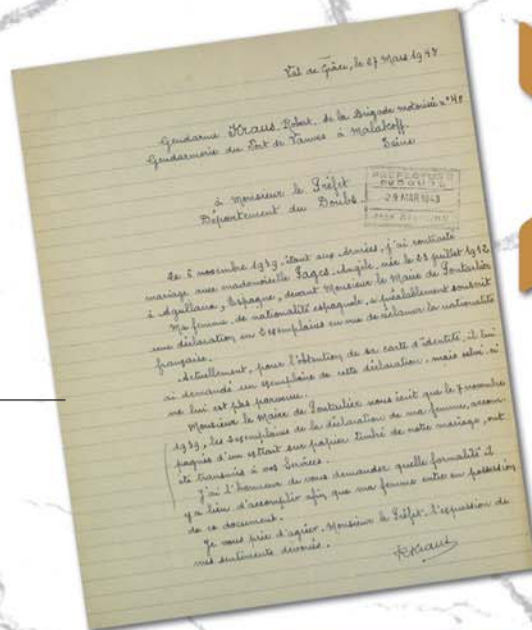 Val de Grâce, le 27 Mars 1948
Gendarme Kraus Robert, de la Brigade motorisée n°48
Gendarmerie du Fort de Vanves à Malakoff.
Seine
à Monsieur le Préfet
Département du Doubs.
PREFECTURE
DU DOUBS
29 MAR 1948
Le 6 novembre 1939, étant aux Armées, j'ai contracté
mariage avec mademoiselle Pages Angèle, née le 23 juillet 1912
à Agullana, Espagne, devant Monsieur le Maire de Pontarlier
Ma femme, de nationalité espagnole, a préalablement souscrit
une déclaration en exemplaires en vue de réclamer la nationalité
française.
Actuellement, pour l'obtention de sa carte d'identité, il lui
ai demandé un exemplaire de cette déclaration, mais celui-ci
ne lui est pas parvenue.
Monsieur le Maire de Pontarlier nous écrit que le 7 novembre
1939, les exemplaires de la déclaration de ma femme, accom-
pagnés d'un extrait sur papier timbré de notre mariage, ont
été transmis à vos Services.
J'ai l'honneur de vous demander quelle formalité il
y a lieu d'accomplir afin que ma femme entre en possession
de ce document.
Je vous prie d'agréer, Monsieur le Préfet, l'expression de
mes sentiments dévoués.
RKraus